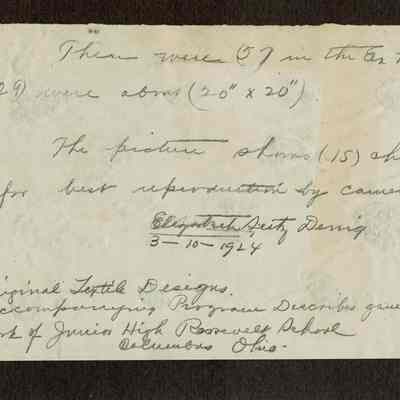 There were (57 in the Ex
29) were about (20" x 20")
The picture shows (15)
for best reproduction by
Elizabeth Seitz Denig
3-10-1924
Original Textile Designs.
Accompanying Program Describes
of Junior High Roosevelt School
Columbus Ohio.